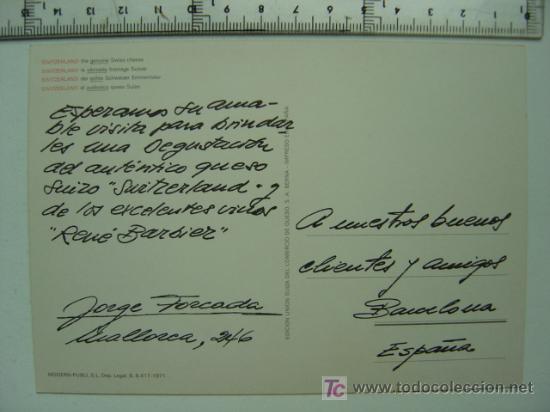 15 14 13 12 11 10 9 8 7 6 5 4 3 2 1 0
SWITZERLAND the genuine Swiss cheese
SWITZERLAND le véritable fromage Suisse
SWITZERLAND der echte Schweizer Emmentaler
SWITZERLAND el auténtico queso Suizo
Esperamos su ama-
ble visita para brindar
les una Degustación
del auténtico queso
Suizo "Switzerland" - y
de los excelentes vinos
"René Barbier"
Jorge Forcada
Mallorca, 246
MODERN-PUBLI, S.L. Dep. Legal, B. 8.417-1971
EDICION UNION SUIZA DEL COMERCIO DE QUESO, S. A. BERNA - IMPRESO EN ESPAÑA
A nuestros buenos
clientes y amigos
Barcelona
España
todocoleccion
www.todocoleccion.net